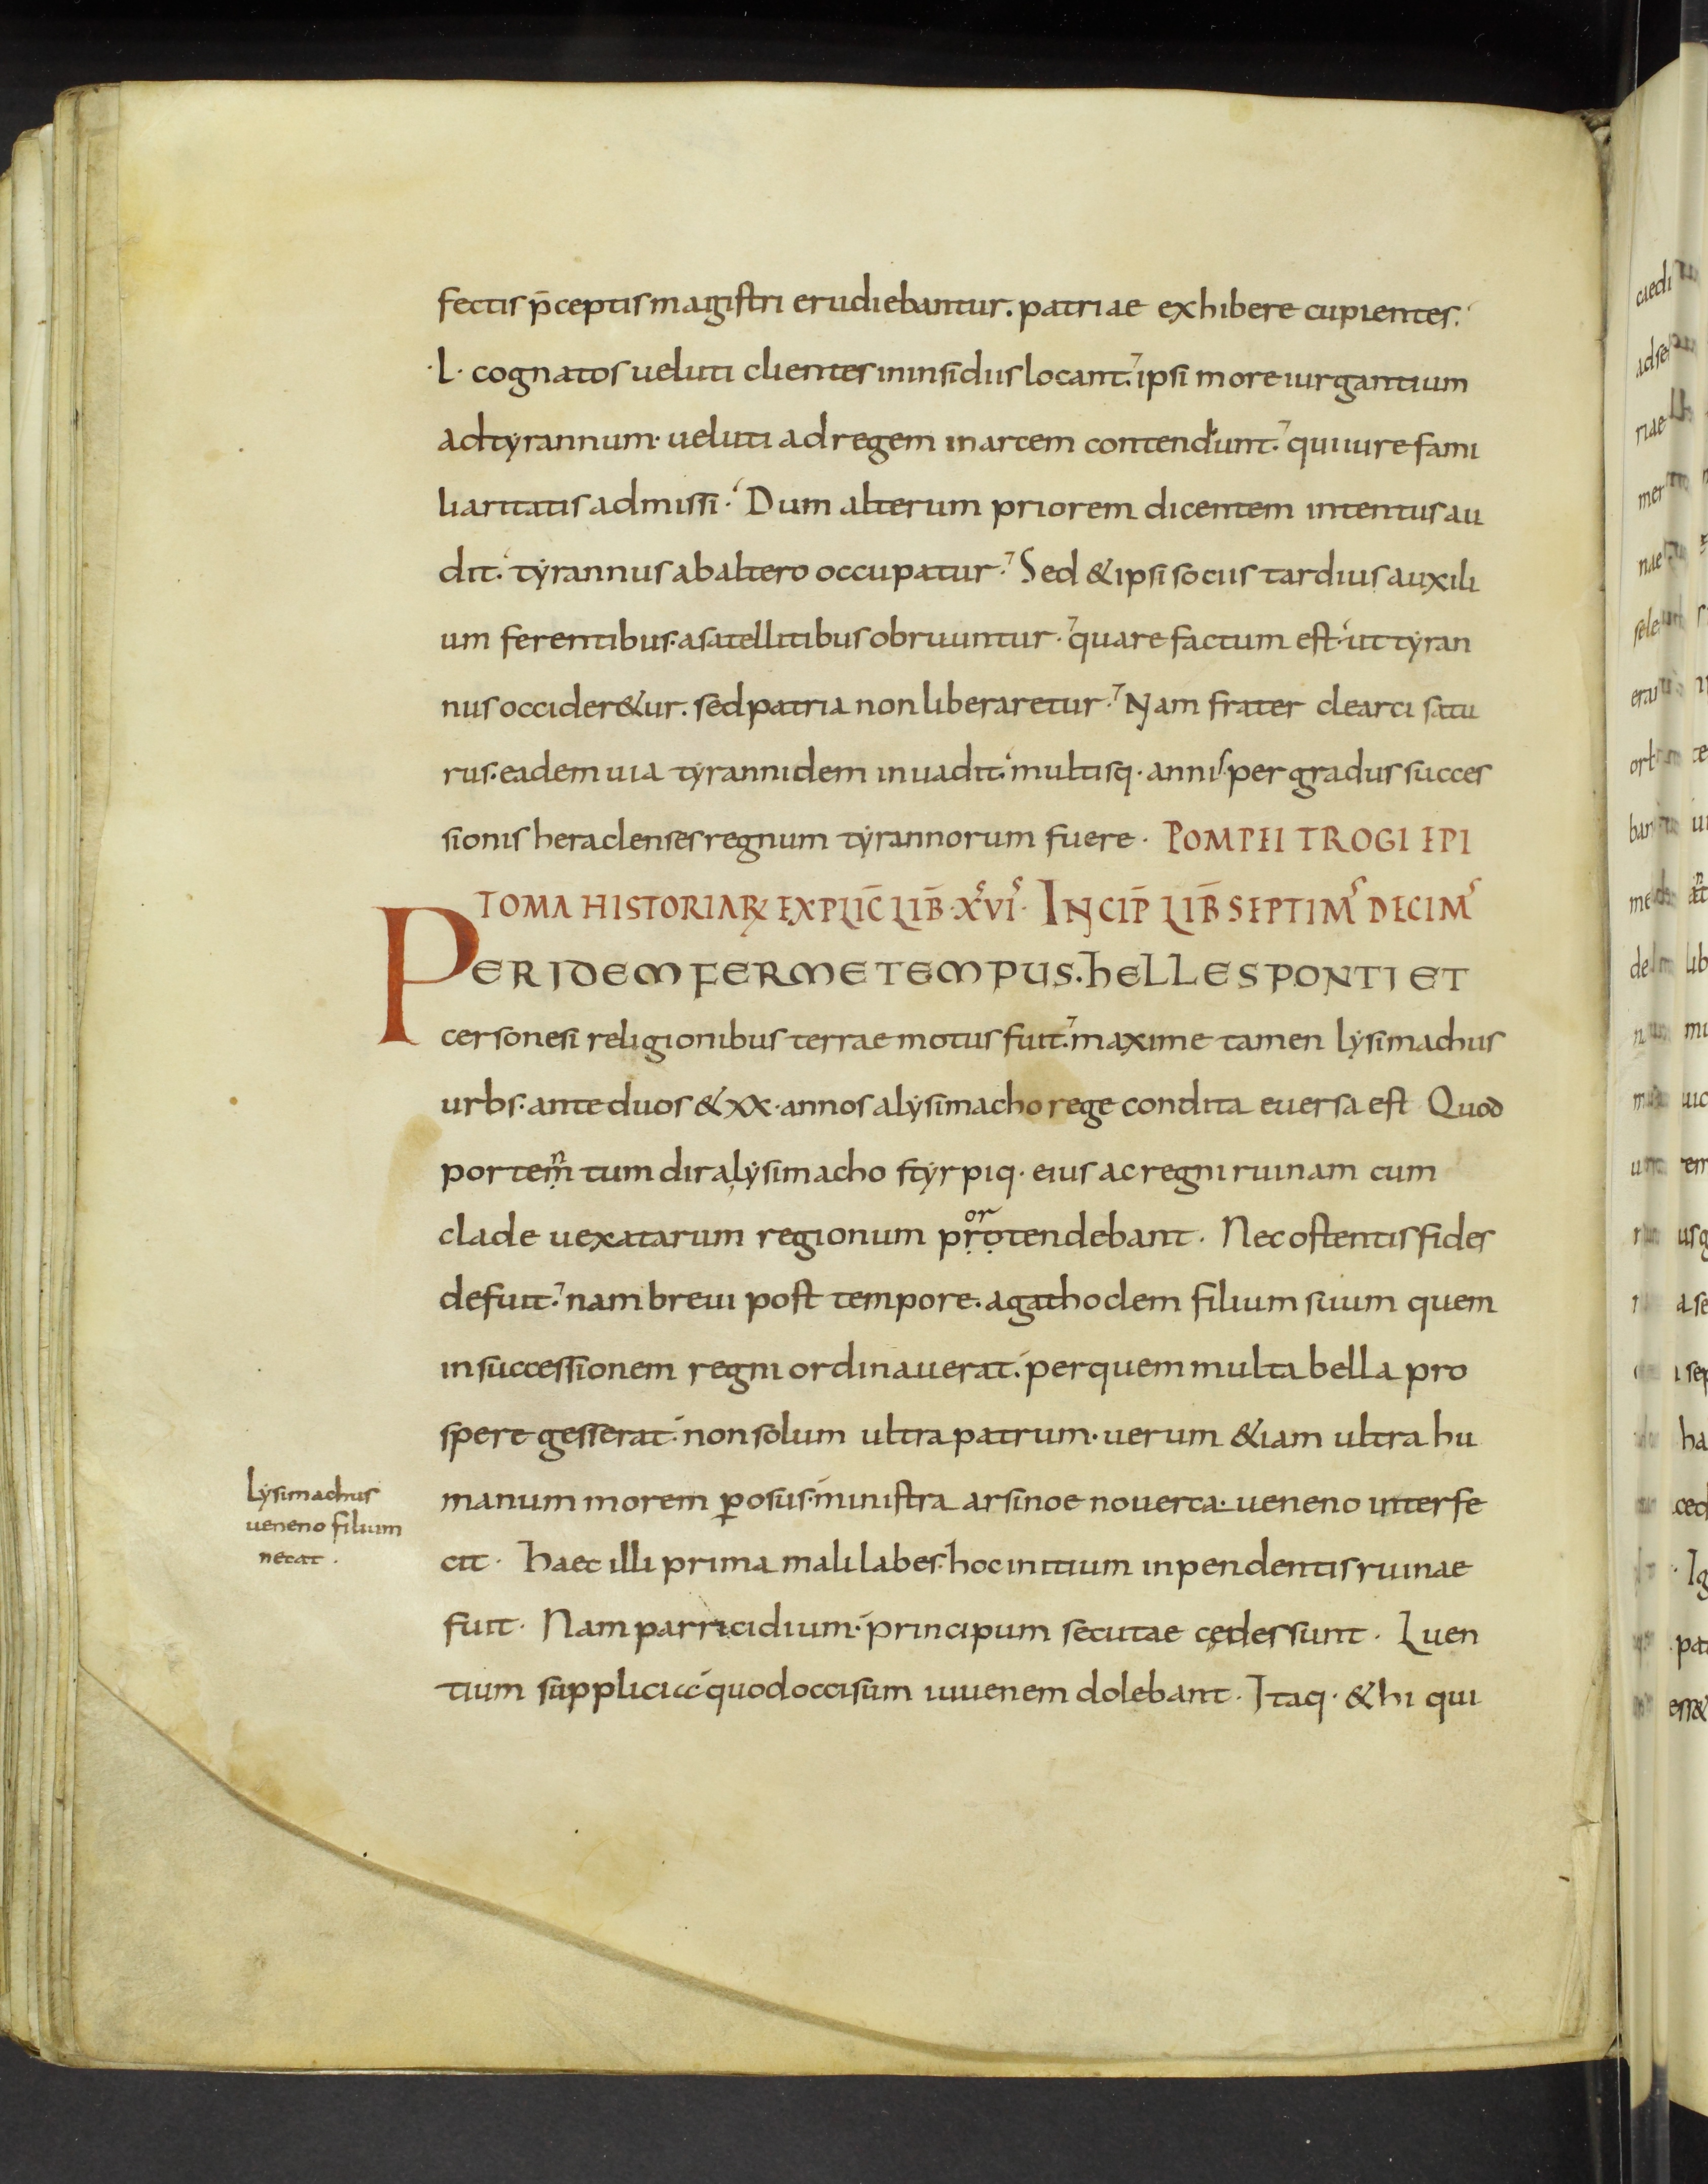 fectis p̄ceptis magistri erudiebantur. patriae exhibere cupientes.
·L· cognatos ueluti clientes ininsidiis locant. ipsi more iurgantium
adtyrannum· ueluti ad regem inarcem contendunt. qui iure fami
liaritatis admissi· Dum alterum priorem dicentem intentus au
dit. tyrannus abaltero occupatur. Sed & ipsi sociis tardius auxili
um ferentibus. a satellitibus obruuntur. quare factum est· ut tyran
nus occider&ur. sed patria non liberaretur. Nam frater clearci satu
rus. eadem uia tyrannidem inuadit. multisq· annis. per gradus succes
sionis heraclenses regnum tyrannorum fuere· POMPEI TROGI EPI
TOMA HISTORIARꝜ EXPLIC̄ LIB̄·XVIˢ· INCIP̄ LIB̄ SEPTIMˢ DECIMˢ
PER IDEM FERME TEMPUS. HELLESPONTI ET
cersonesi religionibus terrae motus fuit. maxime tamen lysimachus
urbs. ante duos & xx· annos alysimacho rege condita euersa est Quod
portemⁿ tum dira lysimacho styrpiq· eius ac regni ruinam cum
clade uexatarum regionum prọtendebant· Nec ostentis fides
or
defuit. nam breui post tempore. agathoclem filium suum quem
insuccessionem regni ordinauerat. per quem multa bella pro
spere gesserat. non solum ultra patrum· uerum &iam ultra hu
manum morem ꝑosus. ministra arsinoe nouerca· ueneno interfe
cit· haec illi prima mali labes. hoc initium inpendentis ruinae
fuit· Nam parricidium· principum secutae cędes sunt· Luen
tium supplicia quod occisum iuuenem dolebant· Itaq· & hi qui
Lysimachus
ueneno filium
necat.